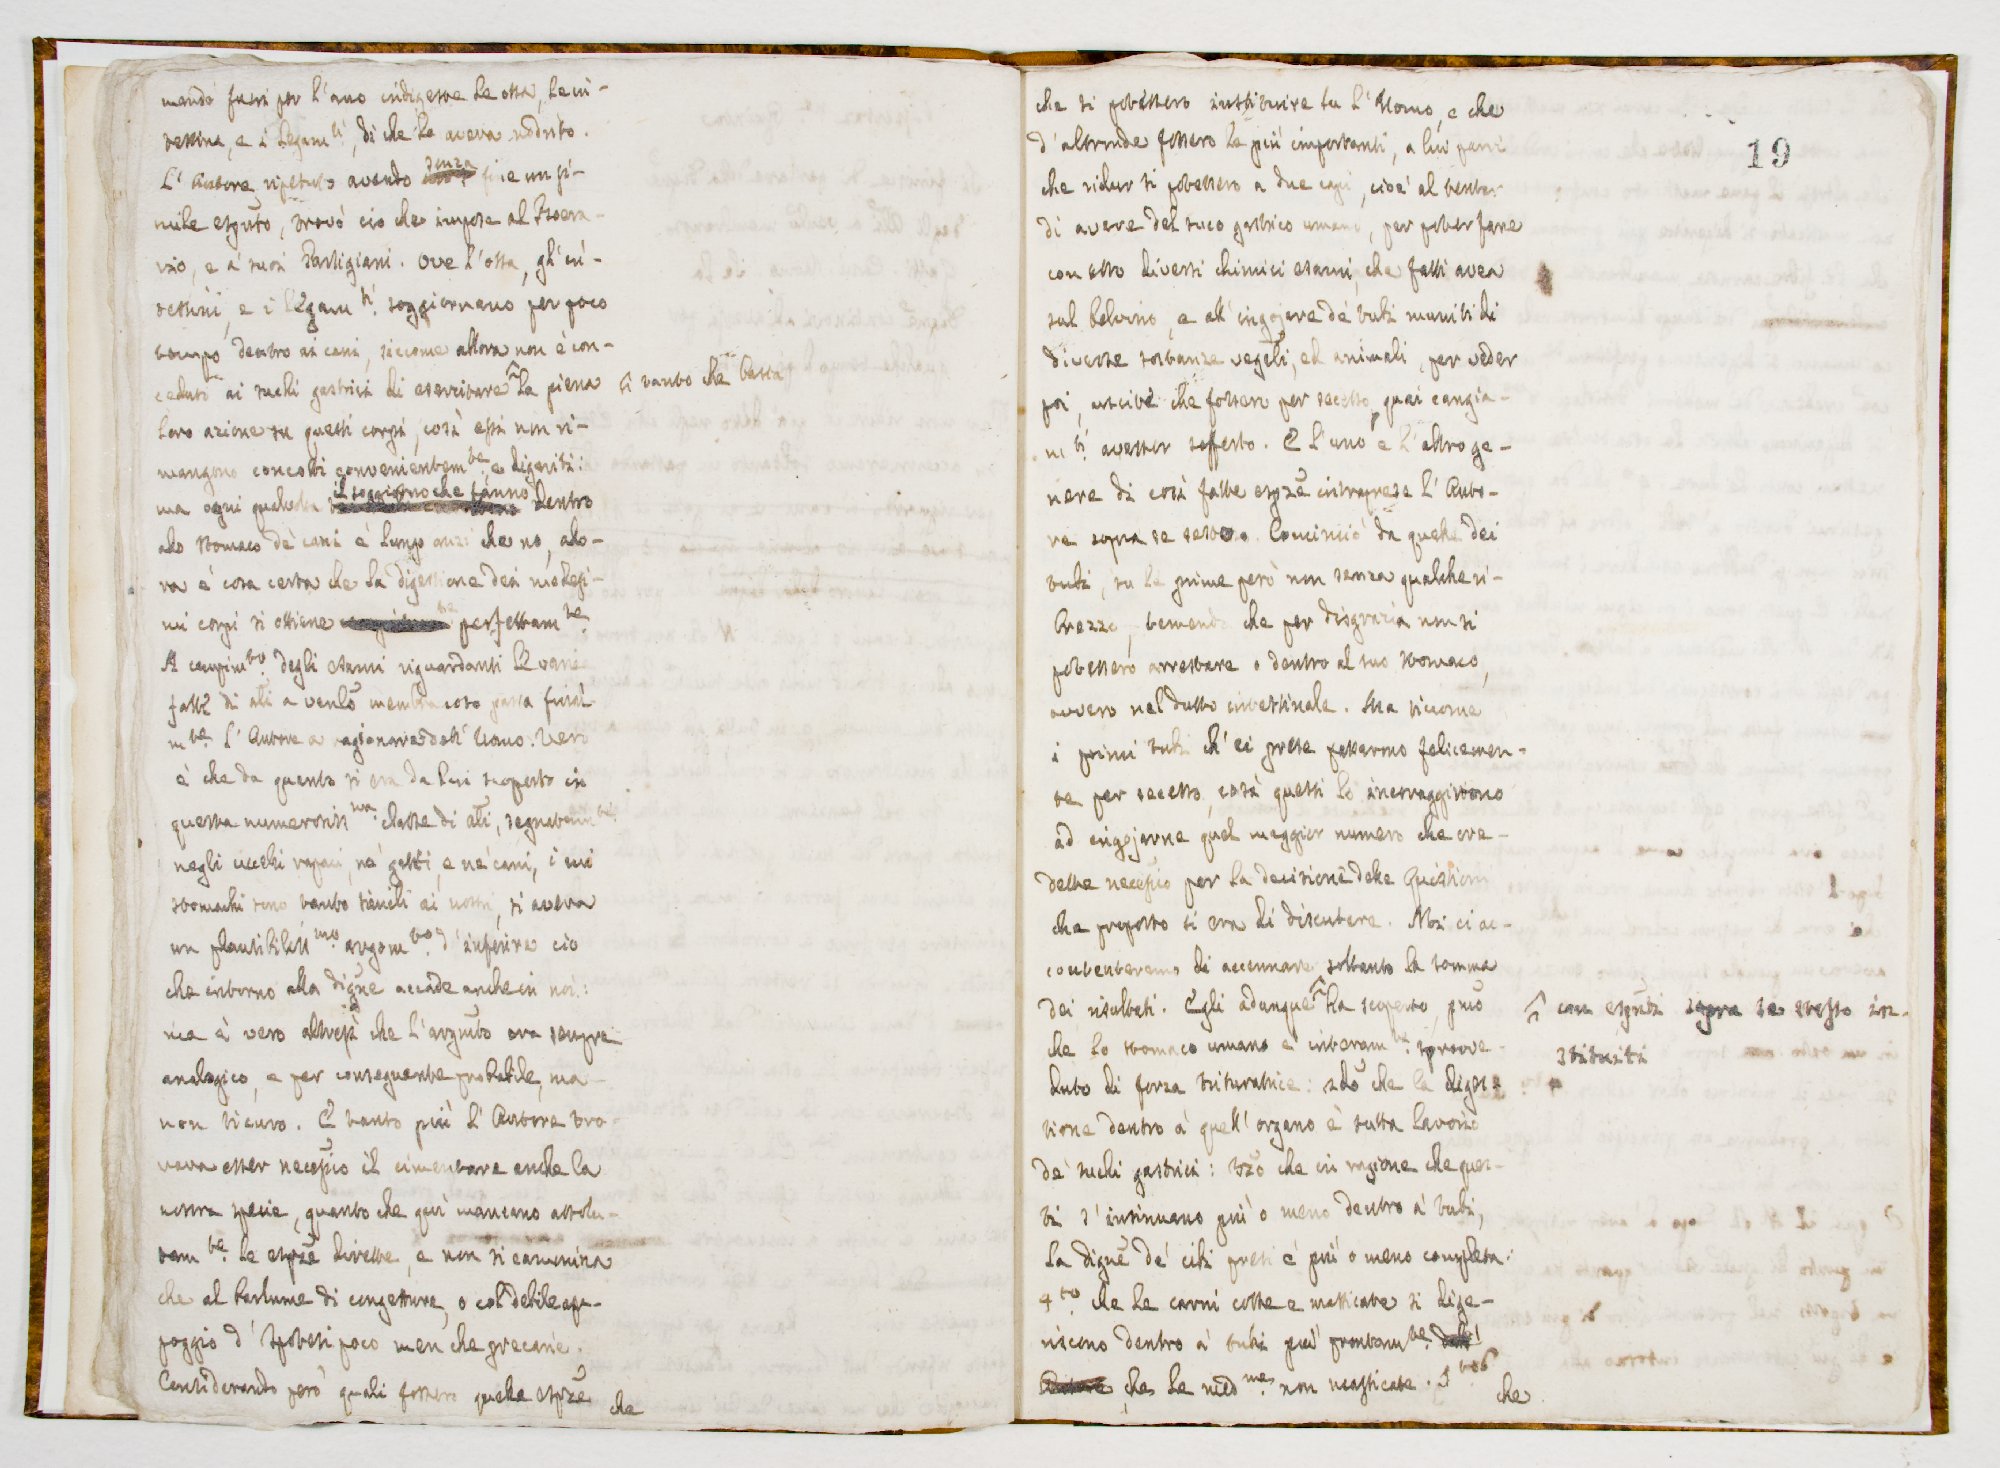 mandò fuori per l'ano indigeste le ossa, le in-
testina, e i legam.ti, di che le aveva nodrito.
L'Autore ripetuto avendo senza fine un si-
mile esp.to, trovò ciò che impose al
e a' suoi Partigiani. Ove l'ossa, gl'in-
testini, e i legam.ti soggiornano per poco
tempo dentro ai cani, siccome allora non è con-
ceduto ai suchi gastrici di esercitare la piena
loro azione su questi corpi, così essi non ri-
mangono concotti convenientem.te e digeriti:
ma ogni qualvolta il soggiorno che fanno dentro
alo stomaco de' cani è lungo anzi che no, alo-
ra è cosa certa che la digestione dei medesi-
mi corpi si ottiene perfettam.te
A compim.to degli esami riguardanti le varie
fatte di ali a ventlo membranoso passa final
m.te l'Autore a ragionare dell'Uomo. Vero
è che da quanto si era da lui scoperto in
questa numerosiss.ma classe di ali, segnatam.te
negli uccelli rapaci, ne' gatti, e ne' cani, i cui
stomachi sono tanto simili ai nostri, si aveva
un plausibiliss.mo argom.to d'inferire ciò
che intorno alla digne accade anche in noi:
ma è vero altresì che l'argmto era sempre
analogico, e per conseguente probabile, ma
non sicuro. E tanto più l'Autore tro-
vava esser necessio il cimentare anche la
nostra specie, quanto che qui mancano assolu-
tam.te le espze dirette, e non si cammina
che al barlume di congetture, o col debile ap-
poggio d'Ipotesi poco men che precarie.
Considerando però quali fossero quelle espze
che
si tanto che basta
19
che si potessero instituire su l'Uomo, e che
d'altronde fossero le più importanti, a lui parve
che ridur si potessero a due capi, cioè al tentar
di avere del suco gastrico umano, per poter fare
con esso diversi chimici esami, che fatti avea
sul belvino, e all'ingojare de' tubi muniti di
diverse sostanze vegeli, ed animali, per veder
poi, usciti che fossero per secesso, quai cangia-
m.ti avesser sofferto. E l'uno e l'altro ge-
nere di così fatte espze intraprese l'Auto-
re sopra se stesso. Cominciò da quelle dei
tubi, su le prime però non senza qualche ri-
brezzo, temendo che per disgrazia non si
potessero arrestare o dentro al suo stomaco,
ovvero nel dutto intestinale. Ma siccome
i primi tubi ch'ei prese passarono felicemen-
te per secesso, così questi lo incoraggirono
ad ingojarne quel maggior numero che cre-
dette necessio per la decisione delle Quistioni
che proposto si era di discutere. Noi ci ac-
contenteremo di accennare soltanto la somma
dei risultati. Egli adunque ha scoperto, pmo
che lo stomaco umano è interam.te sprove-
duto di forza trituratrice: sdo che la diges-
tione dentro a quell'organo è tutta lavorio
de' suchi gastrici: tzo che in ragione che ques-
ti s'insinuano più o meno dentro a' tubi,
la digne de' cibi presi è più o meno completa:
4.to che le carni cotte e masticate si dige-
riscono dentro a' tubi più prontam.te
che le med.me non masticate. 5.to
che
con esp.ti sopra se stesso in-
stituiti